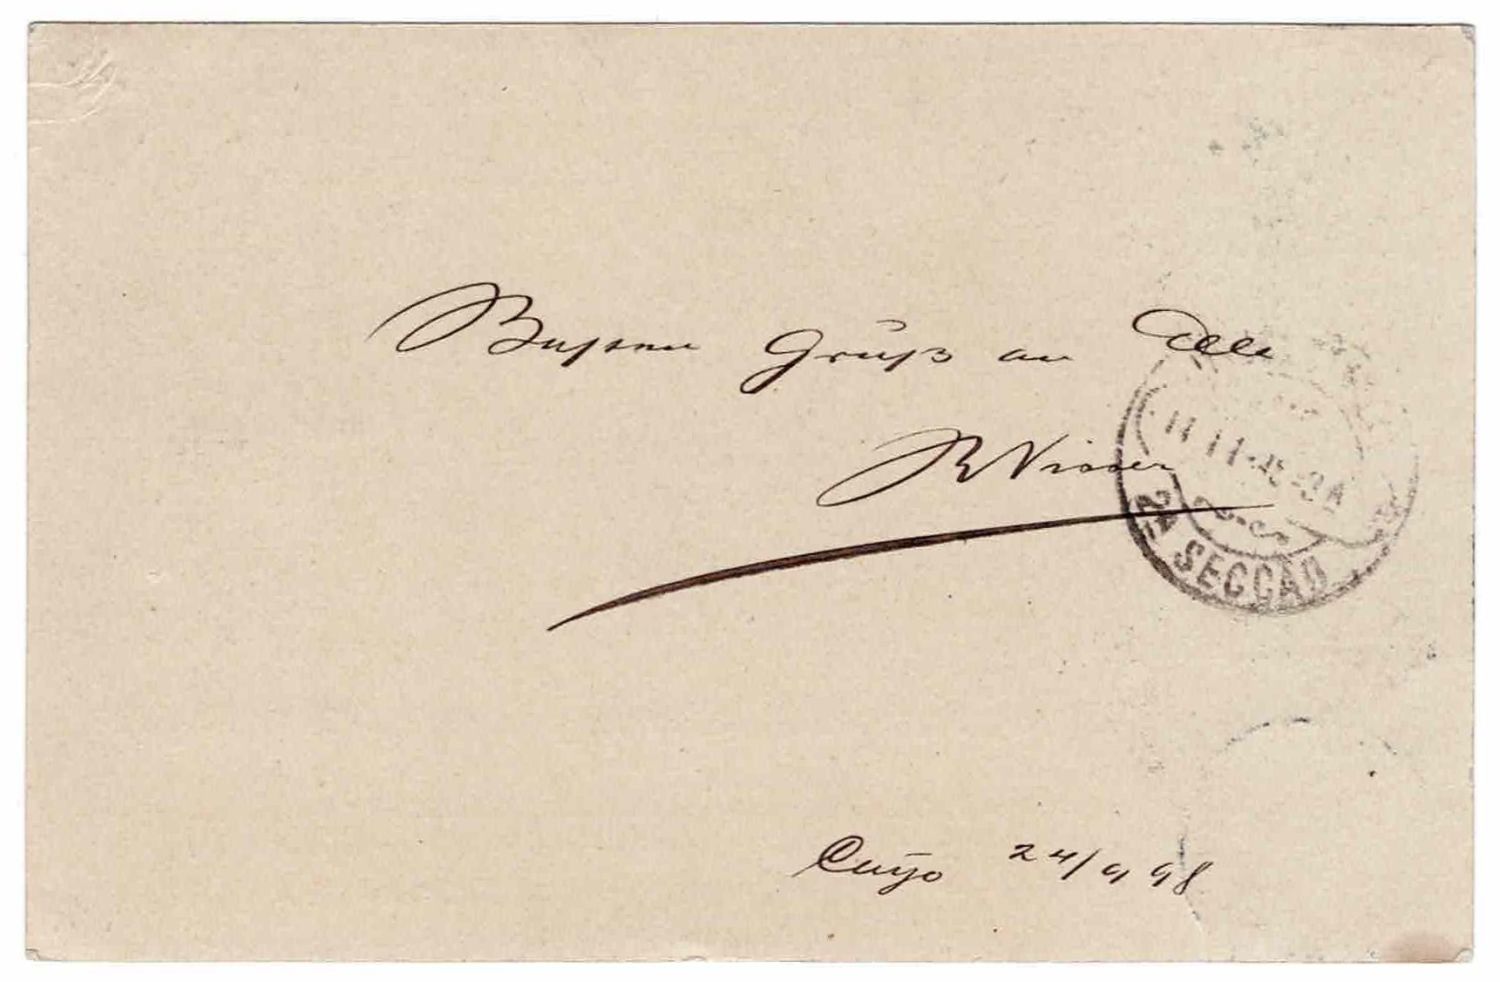 Besten Gruß an Alle
R Visser
2ª SECÇÃO
Cuyo 24/9 98